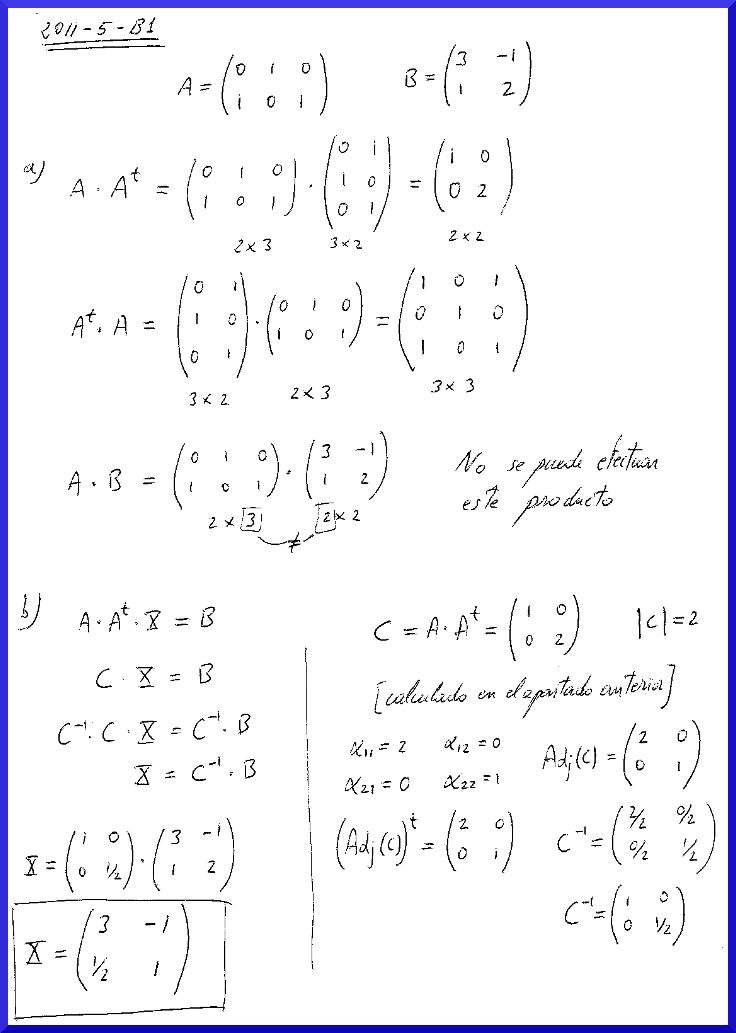 2011-5-B1
A = (0 1 0 / 1 0 1)   B = (3 -1 / 1 2)
a) A · Aᵗ = (0 1 0 / 1 0 1) · (0 1 / 1 0 / 0 1) = (1 0 / 0 2)
2×3   3×2   2×2
Aᵗ · A = (0 1 / 1 0 / 0 1) · (0 1 0 / 1 0 1) = (1 0 1 / 0 1 0 / 1 0 1)
3×2   2×3   3×3
A · B = (0 1 0 / 1 0 1) · (3 -1 / 1 2)
2×3 ≠ 2×2
No se puede efectuar
este producto
b) A · Aᵗ · X = B
C · X = B
C⁻¹ · C · X = C⁻¹ · B
X = C⁻¹ · B
X = (1 0 / 0 1/2) · (3 -1 / 1 2)
X = (3 -1 / 1/2 1)
C = A · Aᵗ = (1 0 / 0 2)   |C| = 2
[calculado en el apartado anterior]
α₁₁ = 2   α₁₂ = 0   Adj(C) = (2 0 / 0 1)
α₂₁ = 0   α₂₂ = 1
(Adj(C))ᵗ = (2 0 / 0 1)   C⁻¹ = (2/2 0/2 / 0/2 1/2)
C⁻¹ = (1 0 / 0 1/2)